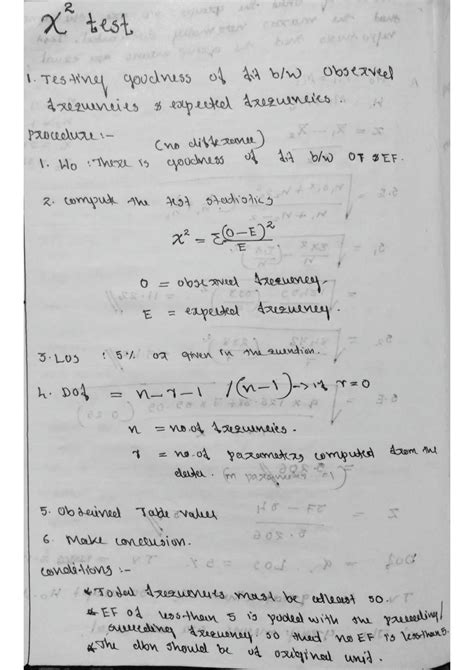 χ² test
1. Testing goodness of fit b/w observed
frequencies & expected frequencies.
Procedure :-
(no difference)
1. Ho : There is goodness of fit b/w OF & EF.
2. compute the test statistics
χ² = Σ(O-E)²/E
O = observed frequency.
E = expected frequency.
3. LOS : 5% or given in the question.
4. DOf = n-r-1 /(n-1)→ if r=0
n = no. of frequencies.
r = no. of parameters computed from the
data.
5. Obtained Table values
6. Make conclusion.
conditions :-
* Total frequencies must be atleast 50.
* EF of less than 5 is pooled with the preceeding/
succeeding frequency so that no EF is less than 5.
* The dbn should be of original unit.